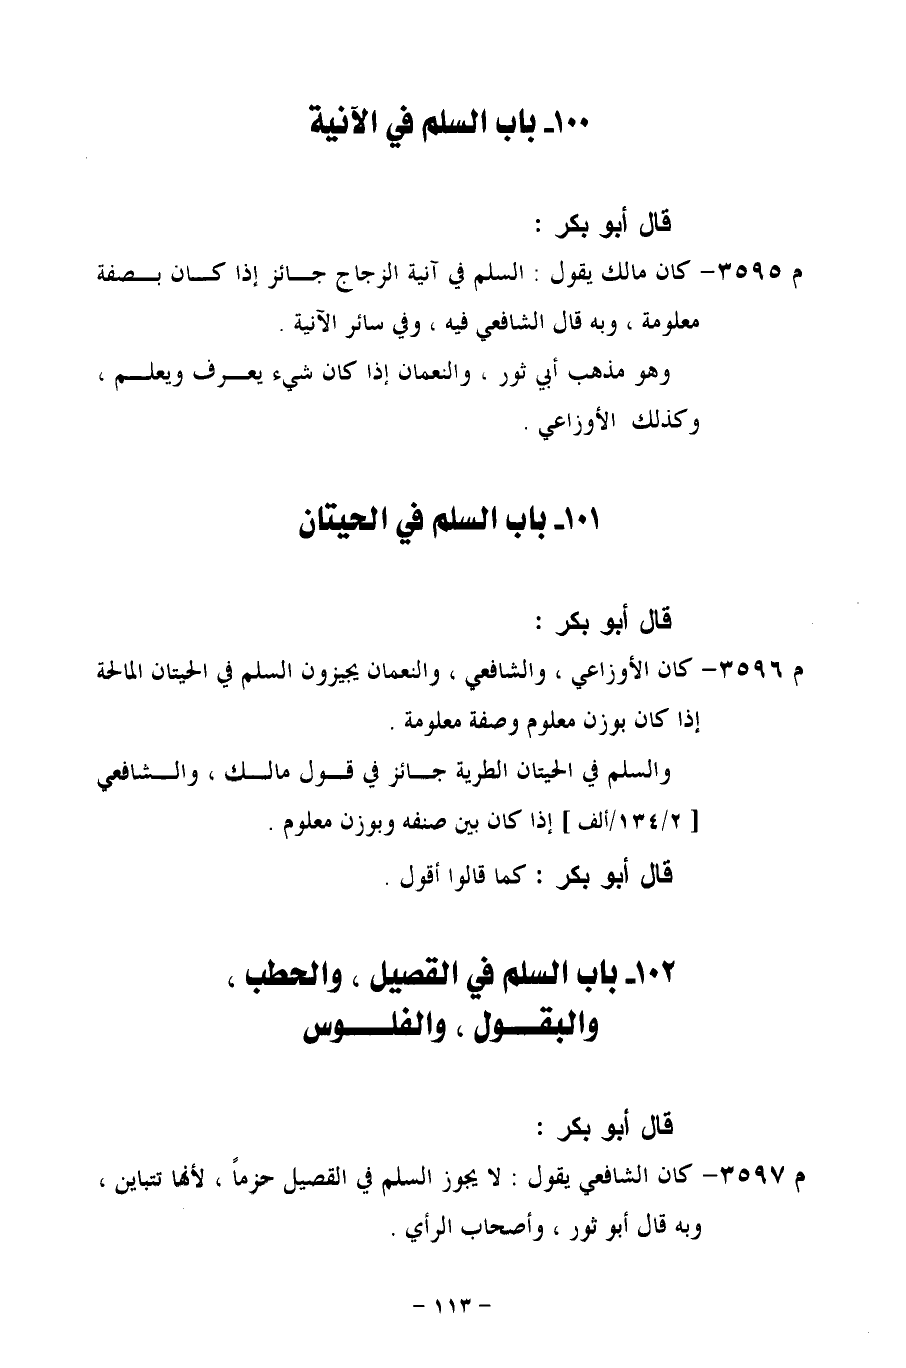 ١٠٠ـ باب السلم في الآنية
قال أبو بكر :
م ٣٥٩٥– كان مالك يقول : السلم في آنية الزجاج جـــائز إذا كـــان بـــصفة
معلومة ، وبه قال الشافعي فيه ، وفي سائر الآنية .
وهو مذهب أبي ثور ، والنعمان إذا كان شيء يعـــرف ويعلـــم ،
وكذلك الأوزاعي .
١٠١ـ باب السلم في الحيتان
قال أبو بكر :
م ٣٥٩٦– كان الأوزاعي ، والشافعي ، والنعمان يجيزون السلم في الحيتان المالحة
إذا كان بوزن معلوم وصفة معلومة .
والسلم في الحيتان الطرية جـــائز في قـــول مالـــك ، والـــشافعي
[ ١٣٤/٢/ألف ] إذا كان بين صنفه وبوزن معلوم .
قال أبو بكر : كما قالوا أقول .
١٠٢ـ باب السلم في القصيل ، والحطب ،
والبقـــول ، والفلـــوس
قال أبو بكر :
م ٣٥٩٧– كان الشافعي يقول : لا يجوز السلم في القصيل حزماً ، لأنها تتباين ،
وبه قال أبو ثور ، وأصحاب الرأي .
– ١١٣ –